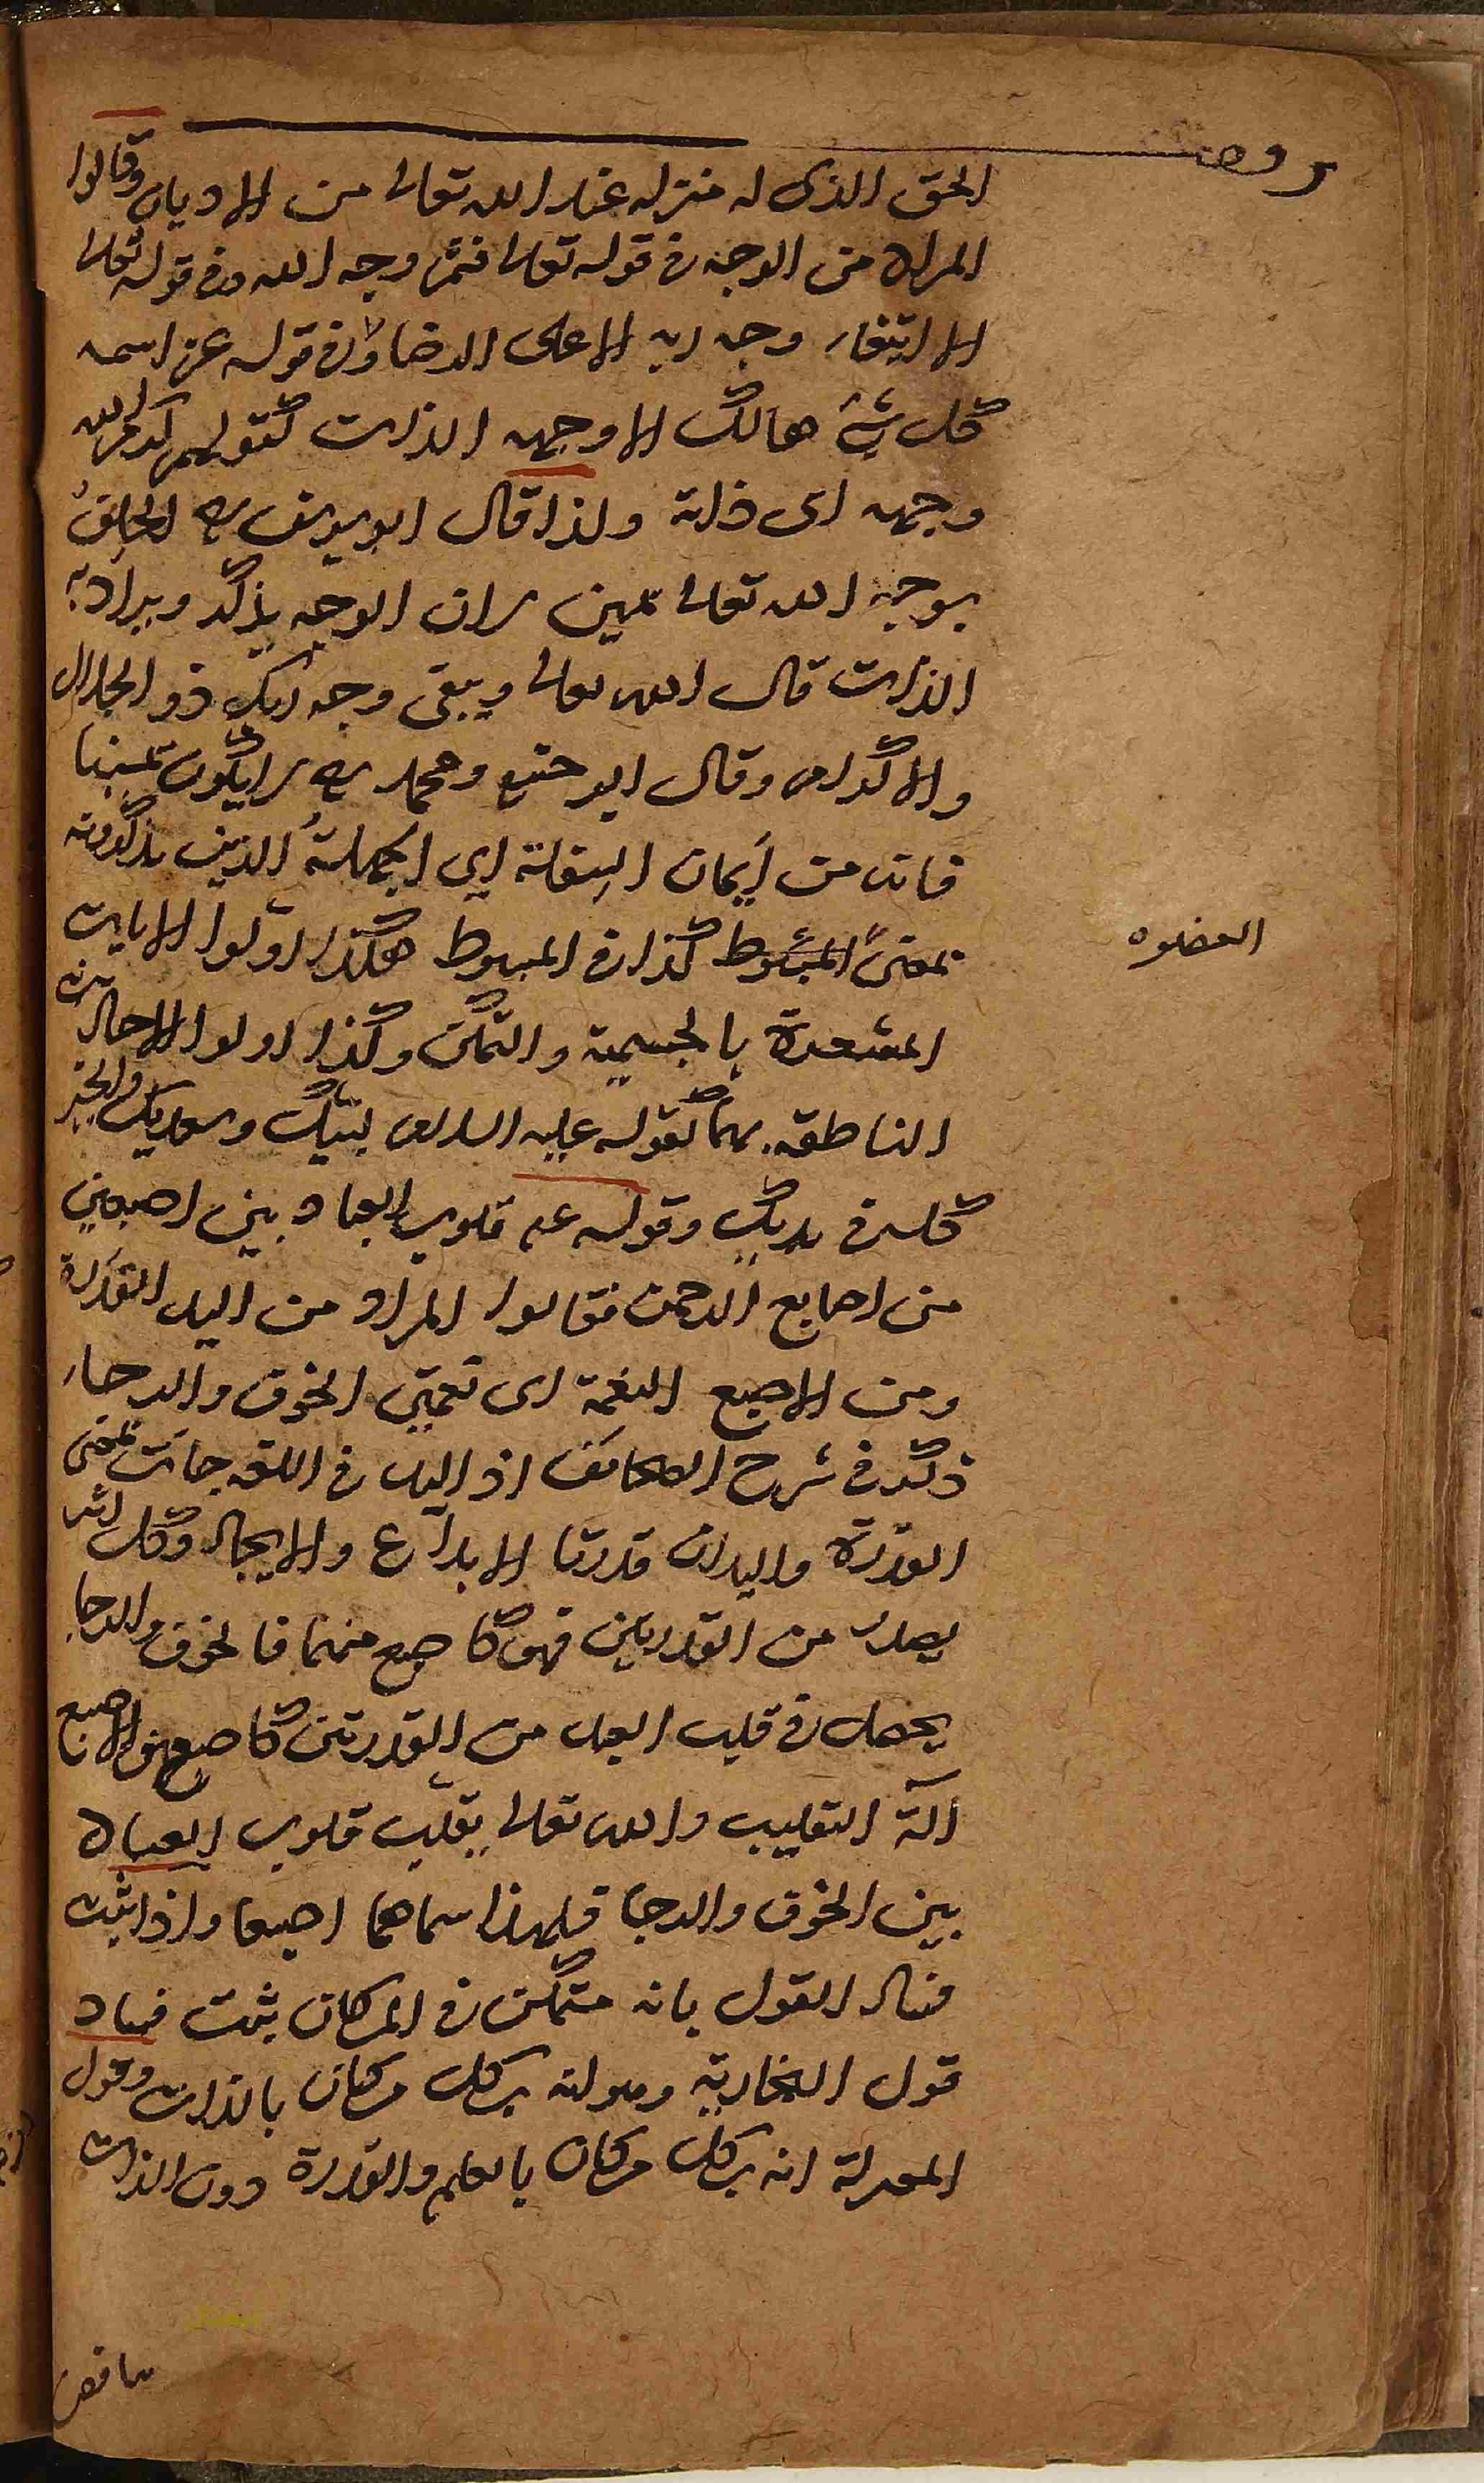 الحق الذى له منزله عند الله تعالى من الاديان وقالوا
المراد من الوجه فى قوله تعالى فثم وجه الله وفى قوله تعالى
الا ابتغاء وجه ربه الاعلى الرضا وفى قوله عز اسمه
كل شئ هالك الا وجهه الذات كقولهم اكرم الله
وجهه اى ذاته ولذا قال ابويوسف رح الحلف
بوجه الله تعالى يمين لان الوجه يذكر ويراد به
الذات قال الله تعالى ويبقى وجه ربك ذو الجلال
والاكرام وقال ابو حنيفة ومحمد رح لا يكون يمينا
فانه من أيمان السفلة اى الجهلة الذين يذكرونه
بمعنى كذا فى المبسوط هكذا اولوا الايات
المشعرة بالجسمية والتمكن وكذا اولوا الاحاديث
الناطقه بهما كقوله عليه السلام لبيك وسعديك والخير
كله فى يديك وقوله عم قلوب العباد بين اصبعين
من اصابع الرحمن فقالوا المراد من اليد القدرة
ومن الاصبع النعمة اى نعمتى الخوف والرجاء
ذكر فى شرح الصحائف اذ اليد فى اللغه جائت بمعنى
القدرة واليدان قدرتا الابداع والايجاد وكل اثر
يصدر من القدرتين فهو كاصبع منهما فالخوف والرجا
يحصل فى قلب العبد من القدرتين كاصبعين والاصبع
آلة التقليب والله تعالى يقلب قلوب العباد
بين الخوف والرجا فلهذا سماهما اصبعا واذا ثبت
فساد القول بانه متمكن فى المكان ثبت فساد
قول النجارية وهو انه بكل مكان بالذات وقول
المعتزلة انه بكل مكان بالعلم والقدرة دون الذات